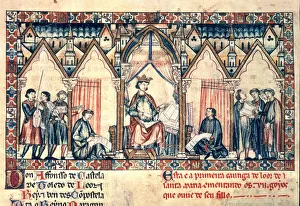 Don Affonso de Castela
de Toledo de Leon
Rey e ben des Conpostela
ta o Reyno daragon
Esta é a primeira cantiga de loor de
santa maria ementando os .vii. goyos
que ouue de seu fillo.